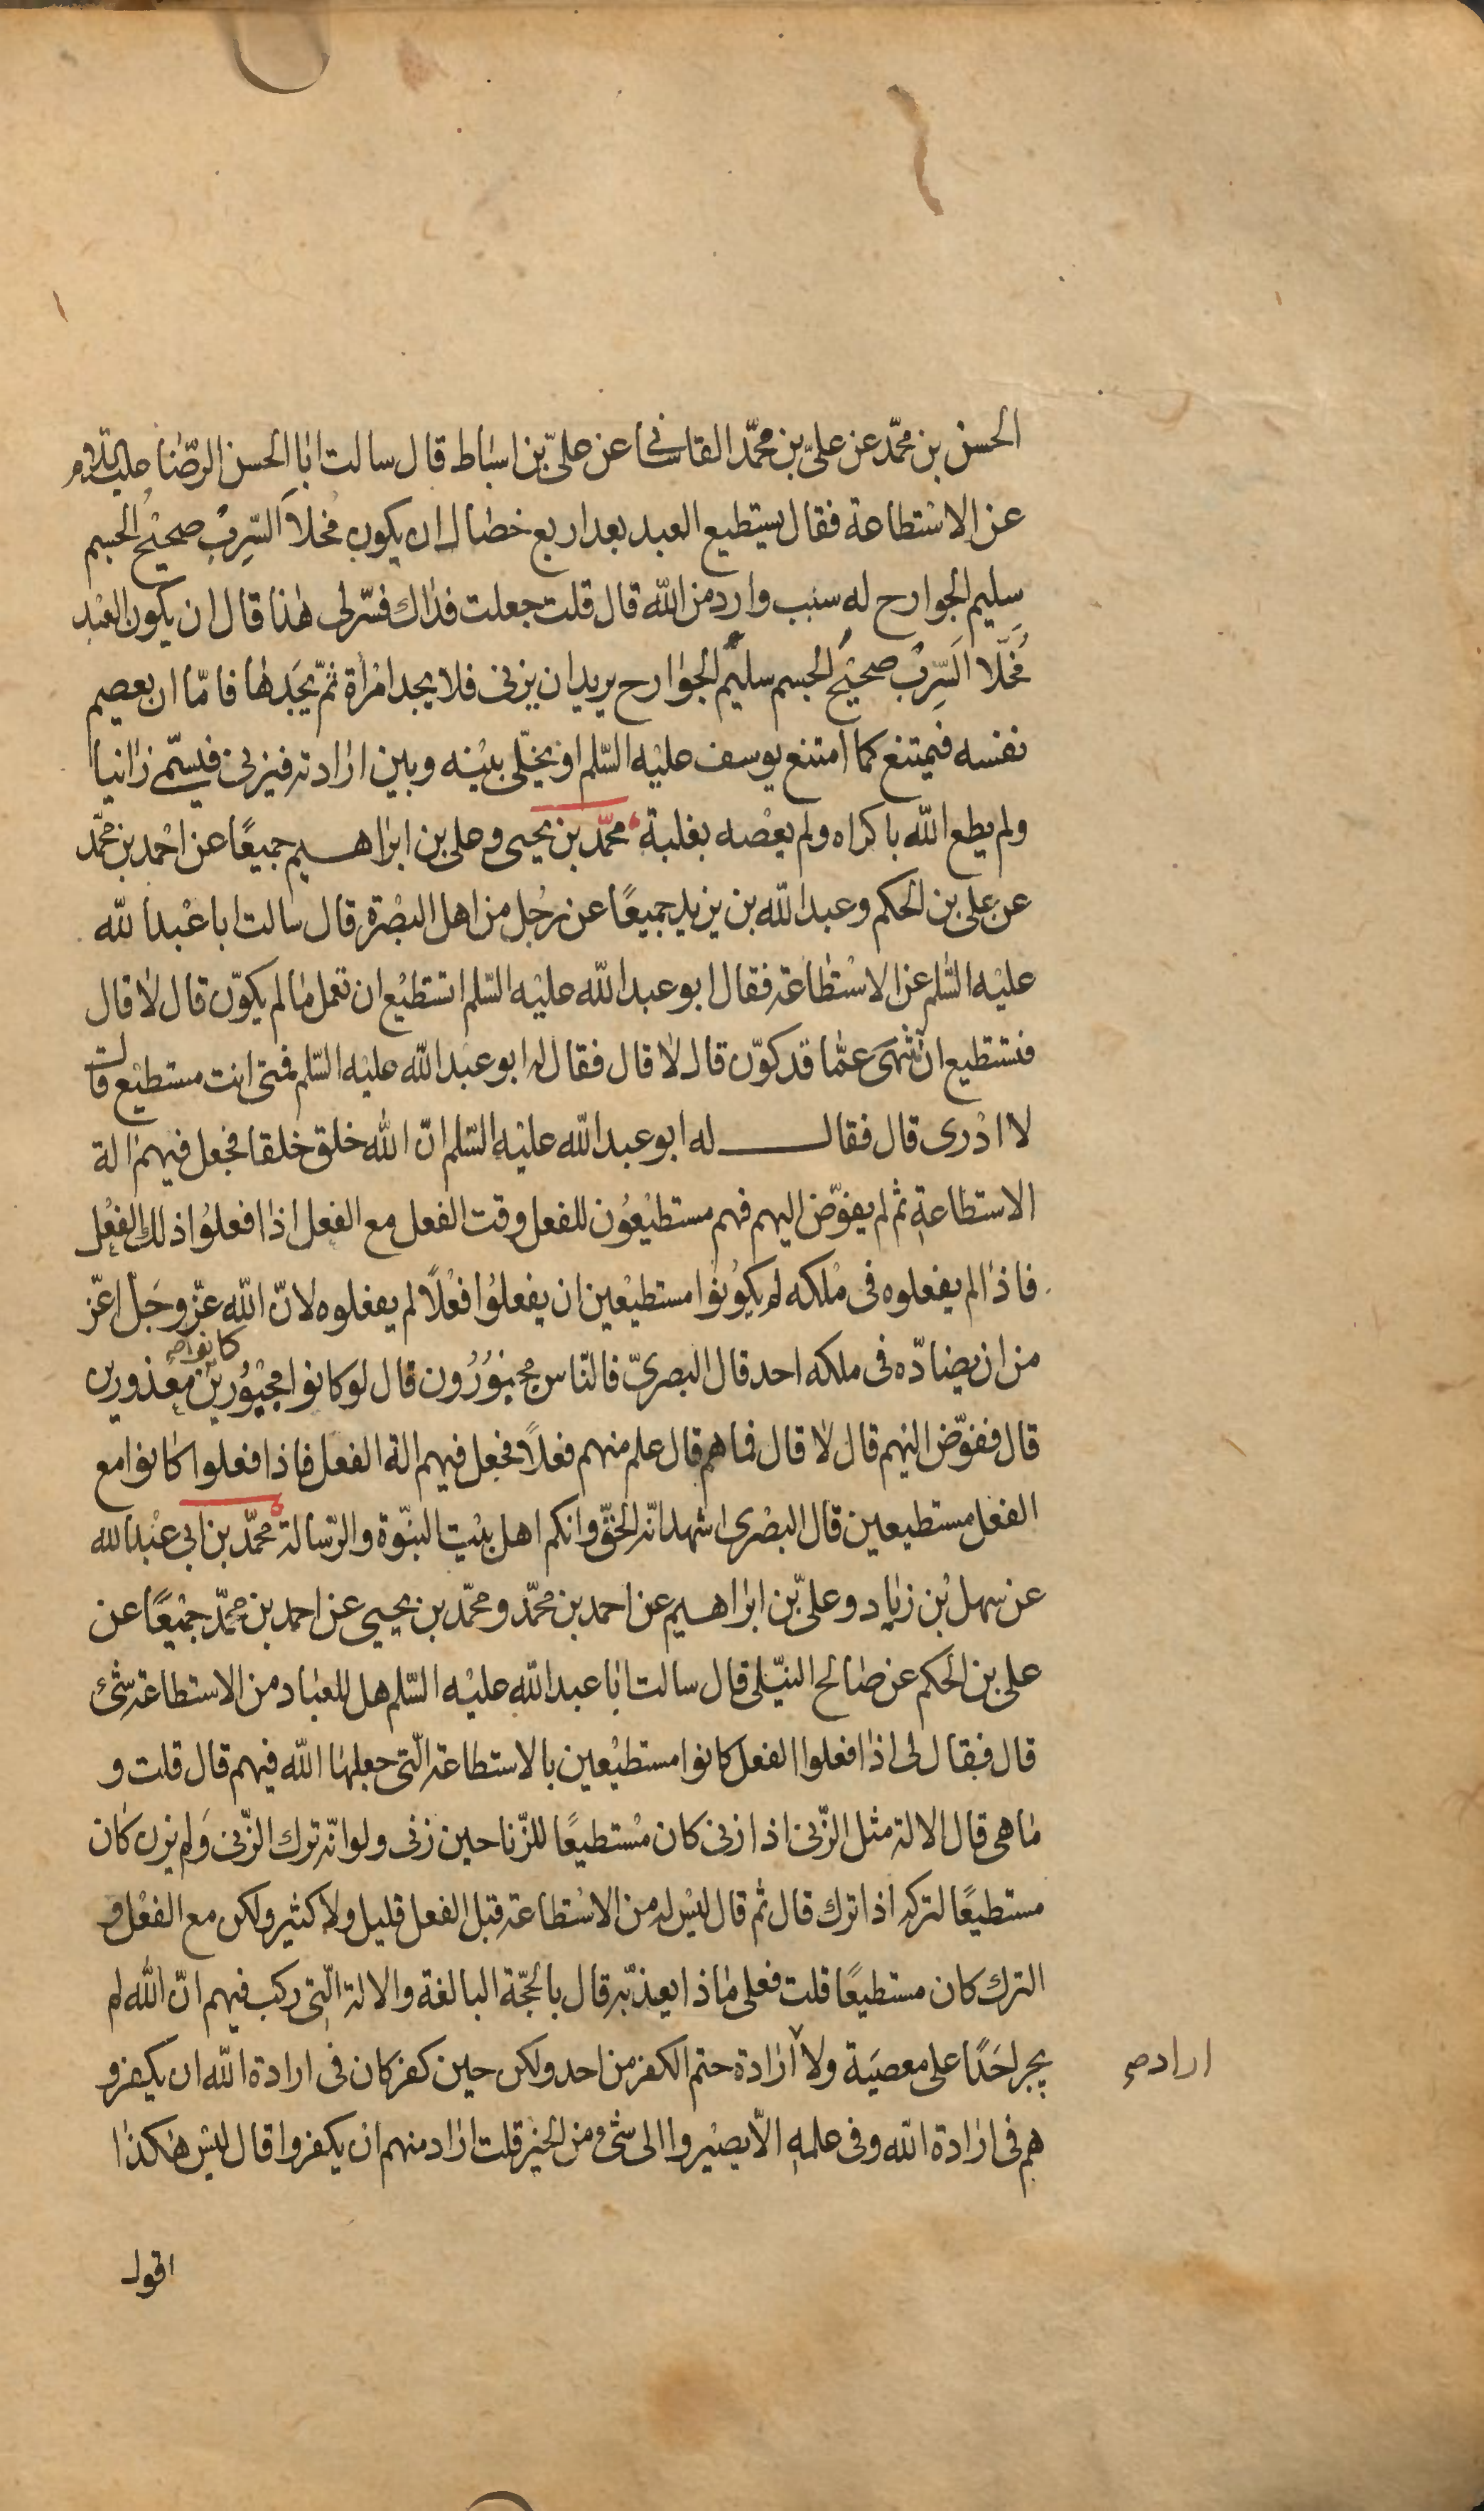 الحسن بن محمّد عن علىّ بن محمّد القاسانى عن علىّ بن اسباط قال سالت ابا الحسن الرّضا عليه السّلام
عن الاستطاعة فقال يستطيع العبد بعد اربع خصال ان يكون مخلّا السّرب صحيح الجسم
سليم الجوارح له سبب وارد من الله قال قلت جعلت فداك فسّر لى هذا قال ان يكون العبد
مخلّا السّرب صحيح الجسم سليم الجوارح يريد ان يزنى فلا يجد امراة ثمّ يجدها فامّا ان يعصم
نفسه فيمتنع كما امتنع يوسف عليه السّلم او يخلّى بينه وبين ارادته فيزنى فيسمّى زانيا
ولم يطع الله باكراه ولم يعصه بغلبة محمّد بن يحيى وعلى بن ابراهيم جميعًا عن احمد بن محمّد
عن على بن الحكم وعبد الله بن يزيد جميعًا عن رجُل من اهل البصرة قال سالت ابا عبد الله
عليه السّلم عن الاستطاعة فقال ابو عبد الله عليه السّلم اتستطيع ان تعمل ما لم يكوّن قال لا قال
فتستطيع ان تنتهى عمّا قد كوّن قال لا قال فقال له ابو عبد الله عليه السّلم فمتى انت مستطيع قال
لا ادرى قال فقال له ابو عبد الله عليه السّلم انّ الله خلق خلقا فجعل فيهم الة
الاستطاعة ثم لم يفوّض اليهم فهم مستطيعُون للفعل وقت الفعل مع الفعل اذا فعلوُا ذلك الفعل
فاذا لم يفعلوه فى مُلكه لم يكوُنوُا مستطيعين ان يفعلوُا فعْلًا لم يفعلوه لانّ الله عزّ وجَل اعزّ
من ان يضادّه فى ملكه احد قال البصرىّ فالنّاس مجبوُرُون قال لو كانوا مجبوُرين كانوا معذورين
قال ففوّض اليهم قال لا قال فما هم قال علم منهم فعلًا فجعل فيهم الة الفعل فاذا فعلوا كانوا مع
الفعل مستطيعين قال البصْرى اشهد انّه الحقّ وانكم اهل بيت النبّوة والرّسالة محمّد بن ابى عبْد الله
عن سهل بْن زياد وعلىّ بن ابراهيم عن احمد بن محمّد ومحمّد بن يحيى عن احمد بن محمّد جميعًا عن
على بن الحكم عن صالح النيّلى قال سالت ابا عبد الله عليه السّلم هل للعباد من الاستطاعة شئ
قال فقال لى اذا فعلوا الفعل كانوا مستطيْعين بالاستطاعة الّتى جعلها الله فيهم قال قلت و
ما هى قال الالة مثل الزّنى اذا زنى كان مُستطيعًا للزّنا حين زنى ولو انّه ترك الزّنى وَلم يزن كان
مستطيعًا لتركه اذا ترك قال ثم قال ليْس له من الاستطاعة قبل الفعل قليل ولا كثير ولكن مع الفعْل و
الترك كان مستطيعًا قلت فعلى ماذا يعذّبه قال بالحجّة البالغة والالة الّتى ركب فيهم انّ الله لم
يجبر احَدًا على معصيَة ولا ارادة حتم الكفر من احد ولكن حين كفر كان فى ارادة الله ان يكفر و
ارادص
هم فى ارادة الله وفى علمه الّا يصيْروا الى شئ من الخير قلت اراد منهم ان يكفروا قال ليْس هكذا
اقول